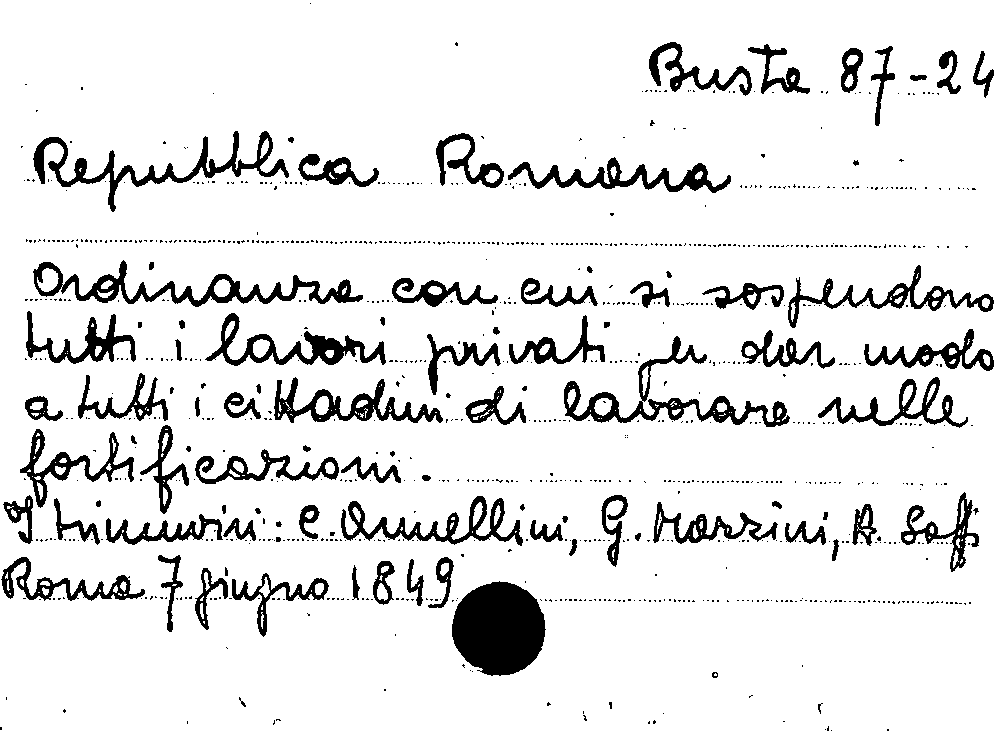 Busta 87-24
Repubblica Romana
Ordinanza con cui si sospendono
tutti i lavori privati per dar modo
a tutti i cittadini di lavorare nelle
fortificazioni.
I triumviri: C. Armellini, G. Mazzini, A. Saffi
Roma 7 giugno 1849